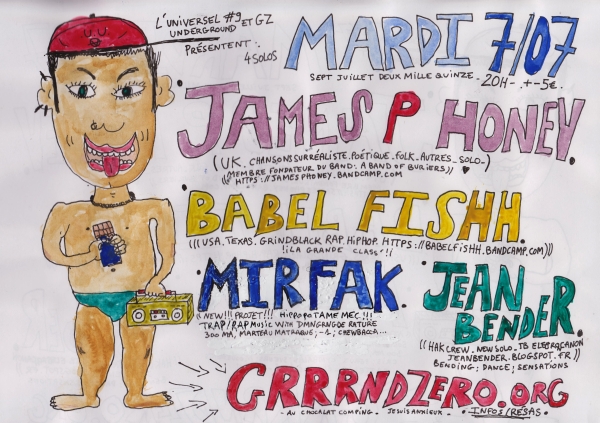 L'UNIVERSEL #9
UNDERGROUND ET GZ
PRÉSENTENT:
4 SOLOS
MARDI 7/07
SEPT JUILLET DEUX MILLE QUINZE. - 20H - .+-5€.
JAMES P HONEY.
(UK. CHANSONS SURRÉALISTE. POÉTIQUE. FOLK. AUTRES. SOLO-)
((MEMBRE FONDATEUR DU BAND: A BAND OF BURIERS))
HTTPS://JAMESPHONEY.BANDCAMP.COM
BABEL FISHH.
((( USA. TEXAS. GRINDBLACK RAP HIPHOP. HTTPS://BABELFISHH.BANDCAMP.COM))
!¡LA GRANDE CLASS*!!
MIRFAK.
NEW!!! PROJET!!! HIPPOPOTAME MEC!!!
TRAP/RAP MUSIC WITH
300 MA, MARTEAU MATRAQUE, -1; CHEWBACCA...
JEAN BENDER.
((HAK CREW. NEW SOLO. TB
JEANBENDER.BLOGSPOT.FR))
BENDING; DANCE; SENSATIONS
GRRRNDZERO.ORG
- AU CHOCOLAT COMPING. - JE SUIS ANXIEUX. - INFOS/RESAS.